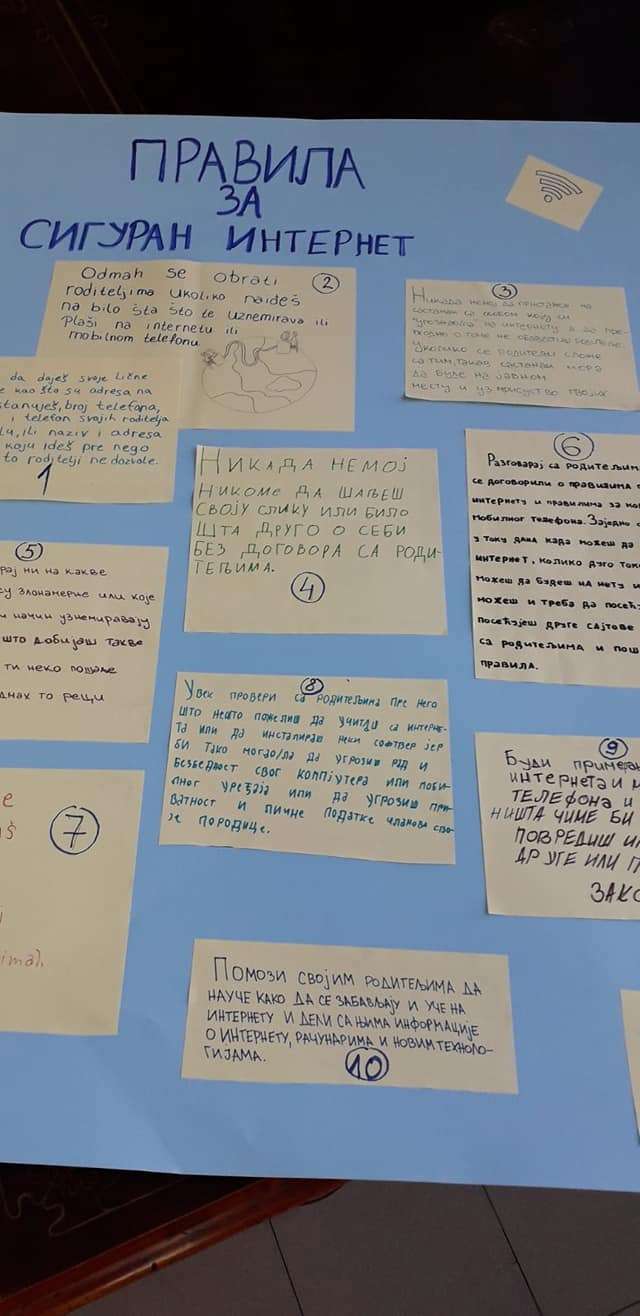 ПРАВИЛА
ЗА
СИГУРАН ИНТЕРНЕТ
da daješ svoje lične
e kao što su adresa na
stanuješ, broj telefona,
i telefon svojih roditelja
lu, ili naziv i adresa
koju ideš pre nego
to roditelji ne dozvole.
1
Odmah se obrati
2
roditeljima ukoliko naiđeš
na bilo šta što te uznemirava ili
plaši na internetu ili
mobilnom telefonu.
3
Никада немој да пристанеш на
састанак са особом коју си
"упознао/ла" на интернету а да пре-
тходно о томе не обавестиш родитеље.
Уколико се родитељи сложе
са тим, такав састанак мора
да буде на јавном
месту и уз присуство твојих
НИКАДА НЕМОЈ
НИКОМЕ ДА ШАЉЕШ
СВОЈУ СЛИКУ ИЛИ БИЛО
ШТА ДРУГО О СЕБИ
БЕЗ ДОГОВОРА СА РОДИ-
ТЕЉИМА.
4
5
рај ни на какве
су злонамерне или које
и начин узнемиравају
што добијаш такве
ти неко пошаље
днах то рећи
6
Разговарај са родитељим
се договорили о правилима
интернету и правилима за мо
мобилног телефона. Заједно
у току дана када можеш да
интернет, колико дуго ток
можеш да будеш на нету и
можеш и треба да посећ
посећујеш друге сајтове
са родитељима и пош
правила.
e
š
7
i
imah
8
Увек провери са родитељима пре него
што нешто пожелиш да учиташ са интерне-
та или да инсталираш неки софтвер јер
би тако могао/ла да угрозиш рад и
безбедност свог компјутера или моби-
лног уређаја или да угрозиш при-
ватност и личне податке чланова сво-
је породице.
9
Буди примеран
интернета и м
ТЕЛЕФОНА И
НИШТА ЧИМЕ БИ
ПОВРЕДИШ И
ДРУГЕ ИЛИ П
ЗАКО
ПОМОЗИ СВОЈИМ РОДИТЕЉИМА ДА
НАУЧЕ КАКО ДА СЕ ЗАБАВЉАЈУ И УЧЕ НА
ИНТЕРНЕТУ И ДЕЛИ СА ЊИМА ИНФОРМАЦИЈЕ
О ИНТЕРНЕТУ, РАЧУНАРИМА И НОВИМ ТЕХНОЛО-
ГИЈАМА.
10